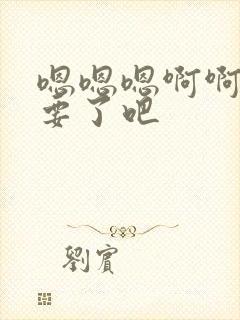 嗯嗯嗯啊啊
要了吧
劉賓